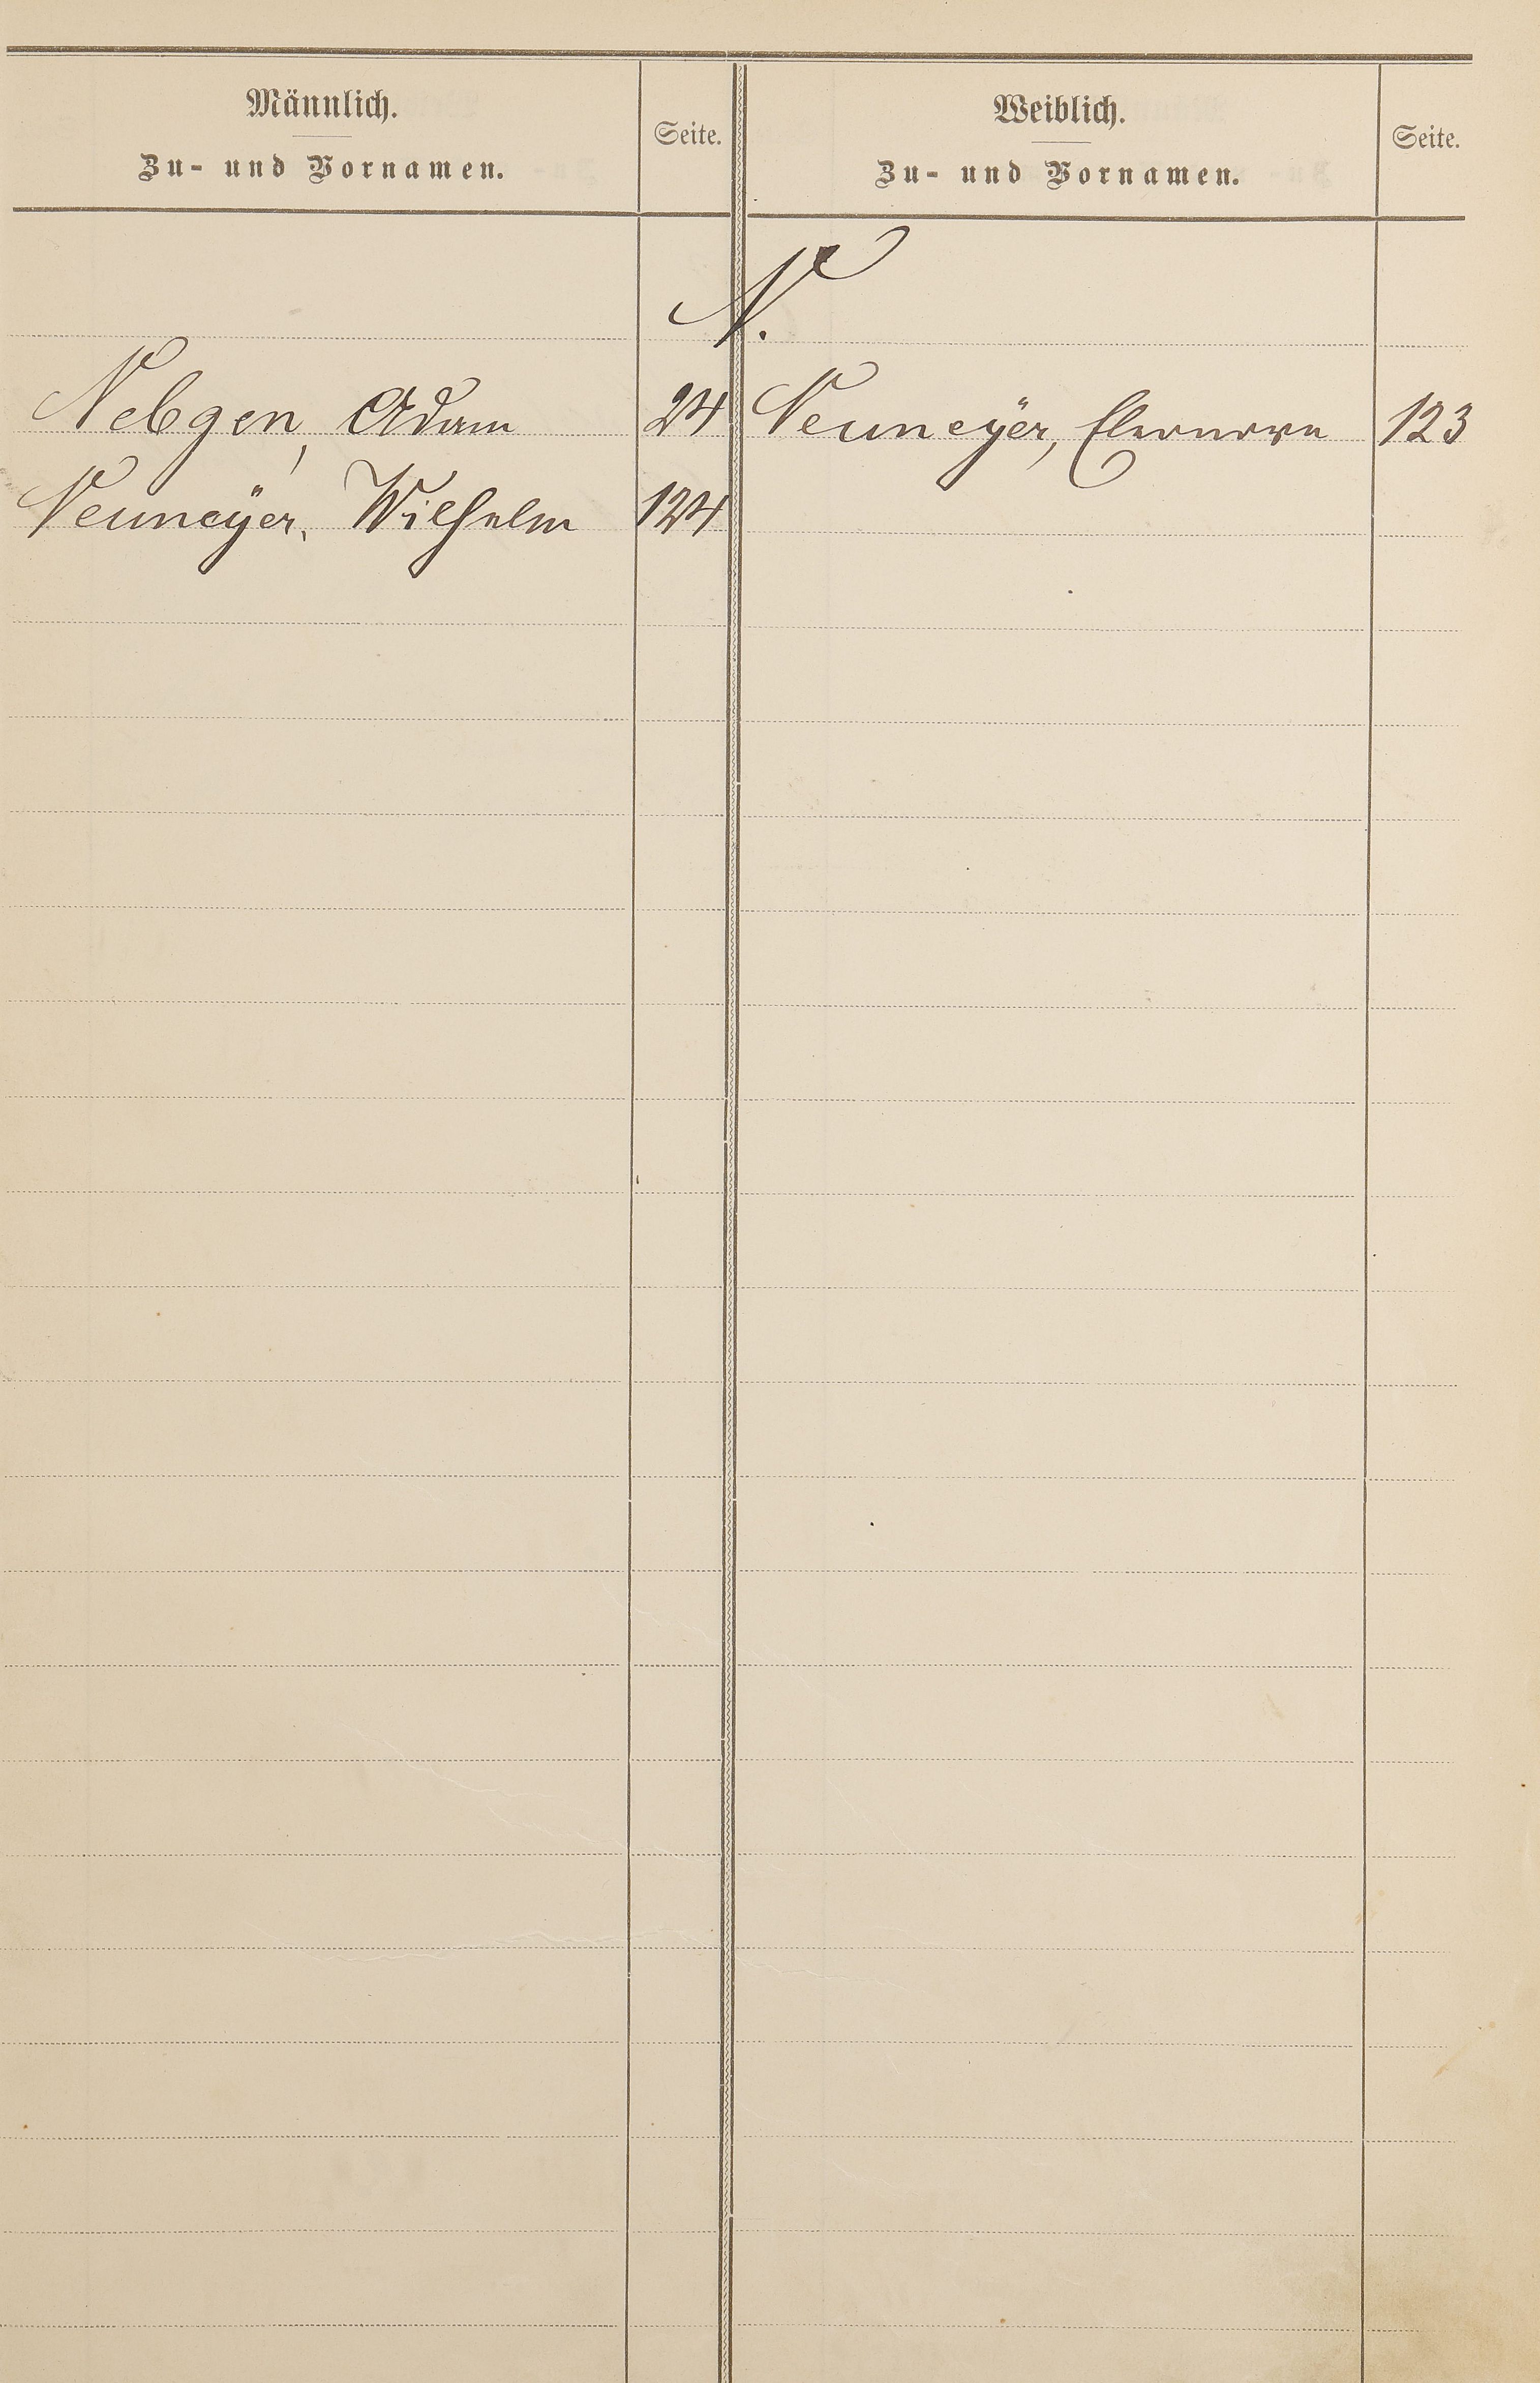 Männlich.
Zu- und Vornamen.
Seite.
Weiblich.
Zu- und Vornamen.
Seite.
N.
Nebgen, Adam 24
Neumeÿer, Eleonora 123
Neumeÿer, Wilhelm 124